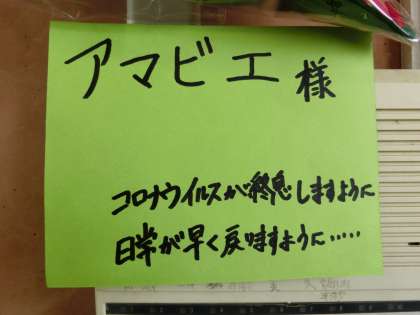 アマビエ様
コロナウイルスが終息しますように
日常が早く戻りますように.....